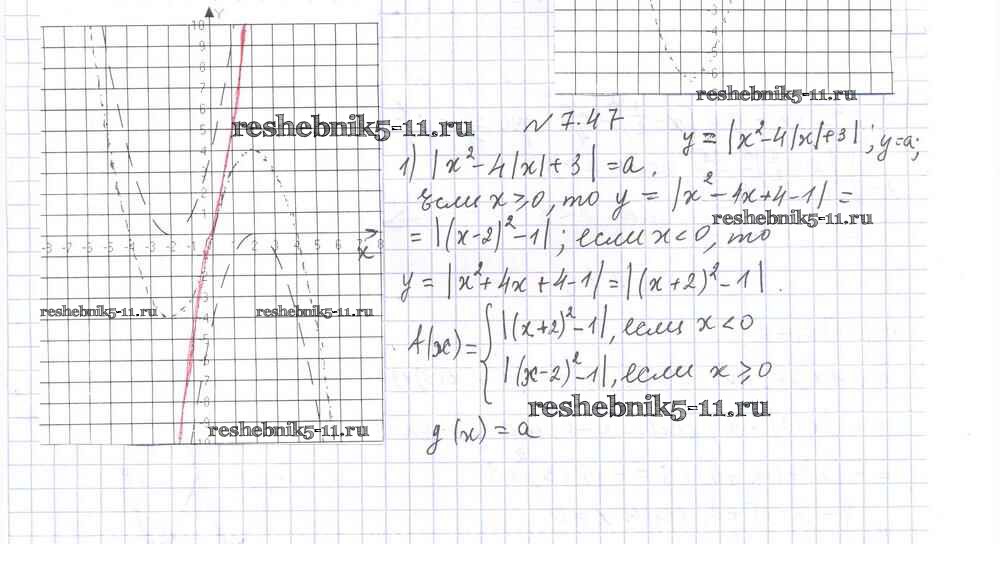 Y
10
9
8
7
6
5
4
3
2
1
-8 -7 -6 -5 -4 -3 -2 -1 0 1 2 3 4 5 6 7 8
x
reshebnik5-11.ru
№ 7.47
y = |x²-4|x|+3|; y=a;
1) |x²-4|x|+3|=a.
Если x ≥ 0, то y = |x²-4x+4-1| =
= |(x-2)²-1|; если x<0, то
y = |x²+4x+4-1| = |(x+2)²-1|.
f(x) = { |(x+2)²-1|, если x<0
|(x-2)²-1|, если x ≥ 0
g(x) = a
reshebnik5-11.ru
reshebnik5-11.ru
reshebnik5-11.ru
reshebnik5-11.ru
reshebnik5-11.ru
reshebnik5-11.ru